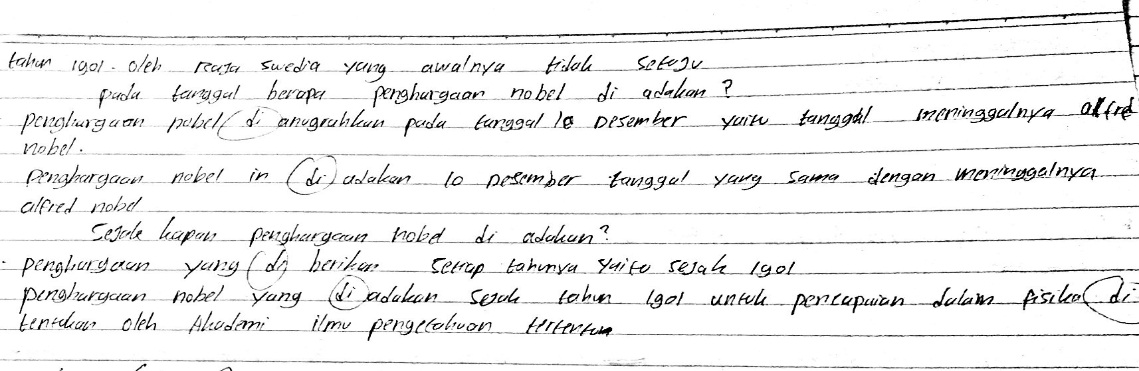 tahun 1901. oleh raja swedia yang awalnya tidak setuju
pada tanggal berapa penghargaan nobel di adakan?
penghargaan nobel di anugrahkan pada tanggal 10 Desember yaitu tanggal meninggalnya alfred
nobel.
Penghargaan nobel in di adakan 10 Desember tanggal yang sama dengan meninggalnya
alfred nobel
Sejak kapan penghargaan nobel di adakan?
penghargaan yang di berikan setiap tahunya yaitu sejak 1901
penghargaan nobel yang di adakan sejak tahun 1901 untuk pencapaian dalam fisika di
tentukan oleh Akademi ilmu pengetahuan